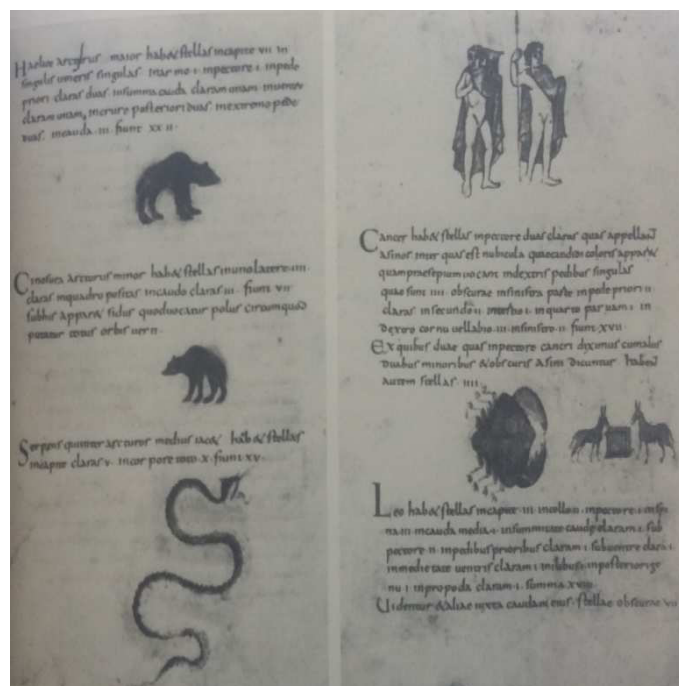 arcturus maior habet stellas incapite vii in
singulis umeris singulas in pectore i inpede
priori claras duas insumma cauda claram unam
claram unam incrure posteriori duas inextremo pede
duas incauda iii fiunt xxii
Cinosura arcturus minor habet stellas inunolatere iiii
claras inquadro positas incauda claras iii fiunt vii
subtus apparet sidus quoduocatur polus
totus orbis
Serpens quiinter arcturos medius iacet habet stellas
incapite claras v incorpore x fiunt xv
Cancer habet stellas inpectore duas claras quas appellant
asinos inter quas est nubicula coloris apparet
quam praesepium uocant indextris pedibus singulas
quae sunt iiii obscurae insinistra parte inpede priori ii
claras insecundo ii inquarto paruam i in
dextro cornu iii insinistro ii fiunt xvii
Ex quibus duae quas inpectore cancri diximus
duabus minoribus &obscuris asini dicuntur habent
autem stellas iiii
Leo habet stellas incapite iii incollo ii inpectore i
na iii incauda media i insummitate caudae claram i sub
pectore ii inpedibus prioribus claram i subuentre claram i
uentris claram i
nu i claram i summa xviii
Uidentur &aliae iuxta caudam eius stellae obscurae vii